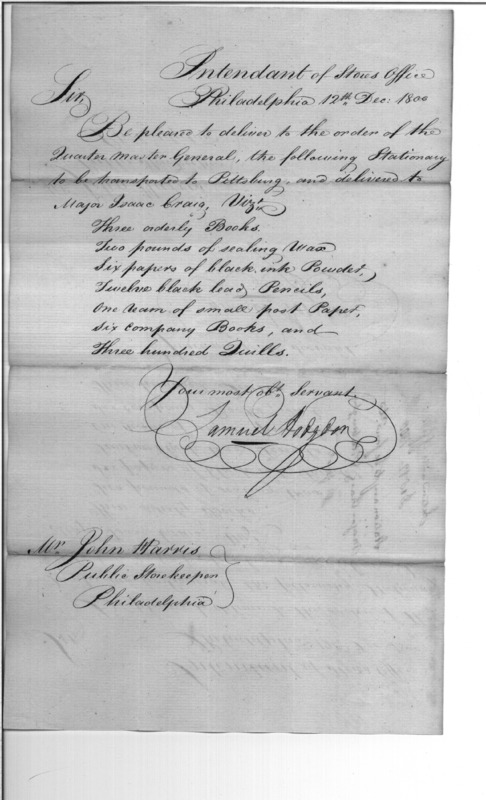 Intendant of Stores Office
Philadelphia 12th. Dec: 1800
Sir,
Be pleased to deliver to the order of the
Quarter Master General, the following Stationary
to be transported to Pittsburg, and delivered to
Major Isaac Craig, Vizt.
Three orderly Books.
Two pounds of sealing Wax
Six papers of black ink Powder,
Twelve black lead Pencils,
One ream of small post Paper,
Six company Books, and
Three hundred Quills.
Your most obt. Servant.
Samuel Hodgdon
Mr. John Harris
Public Storekeeper
Philadelphia